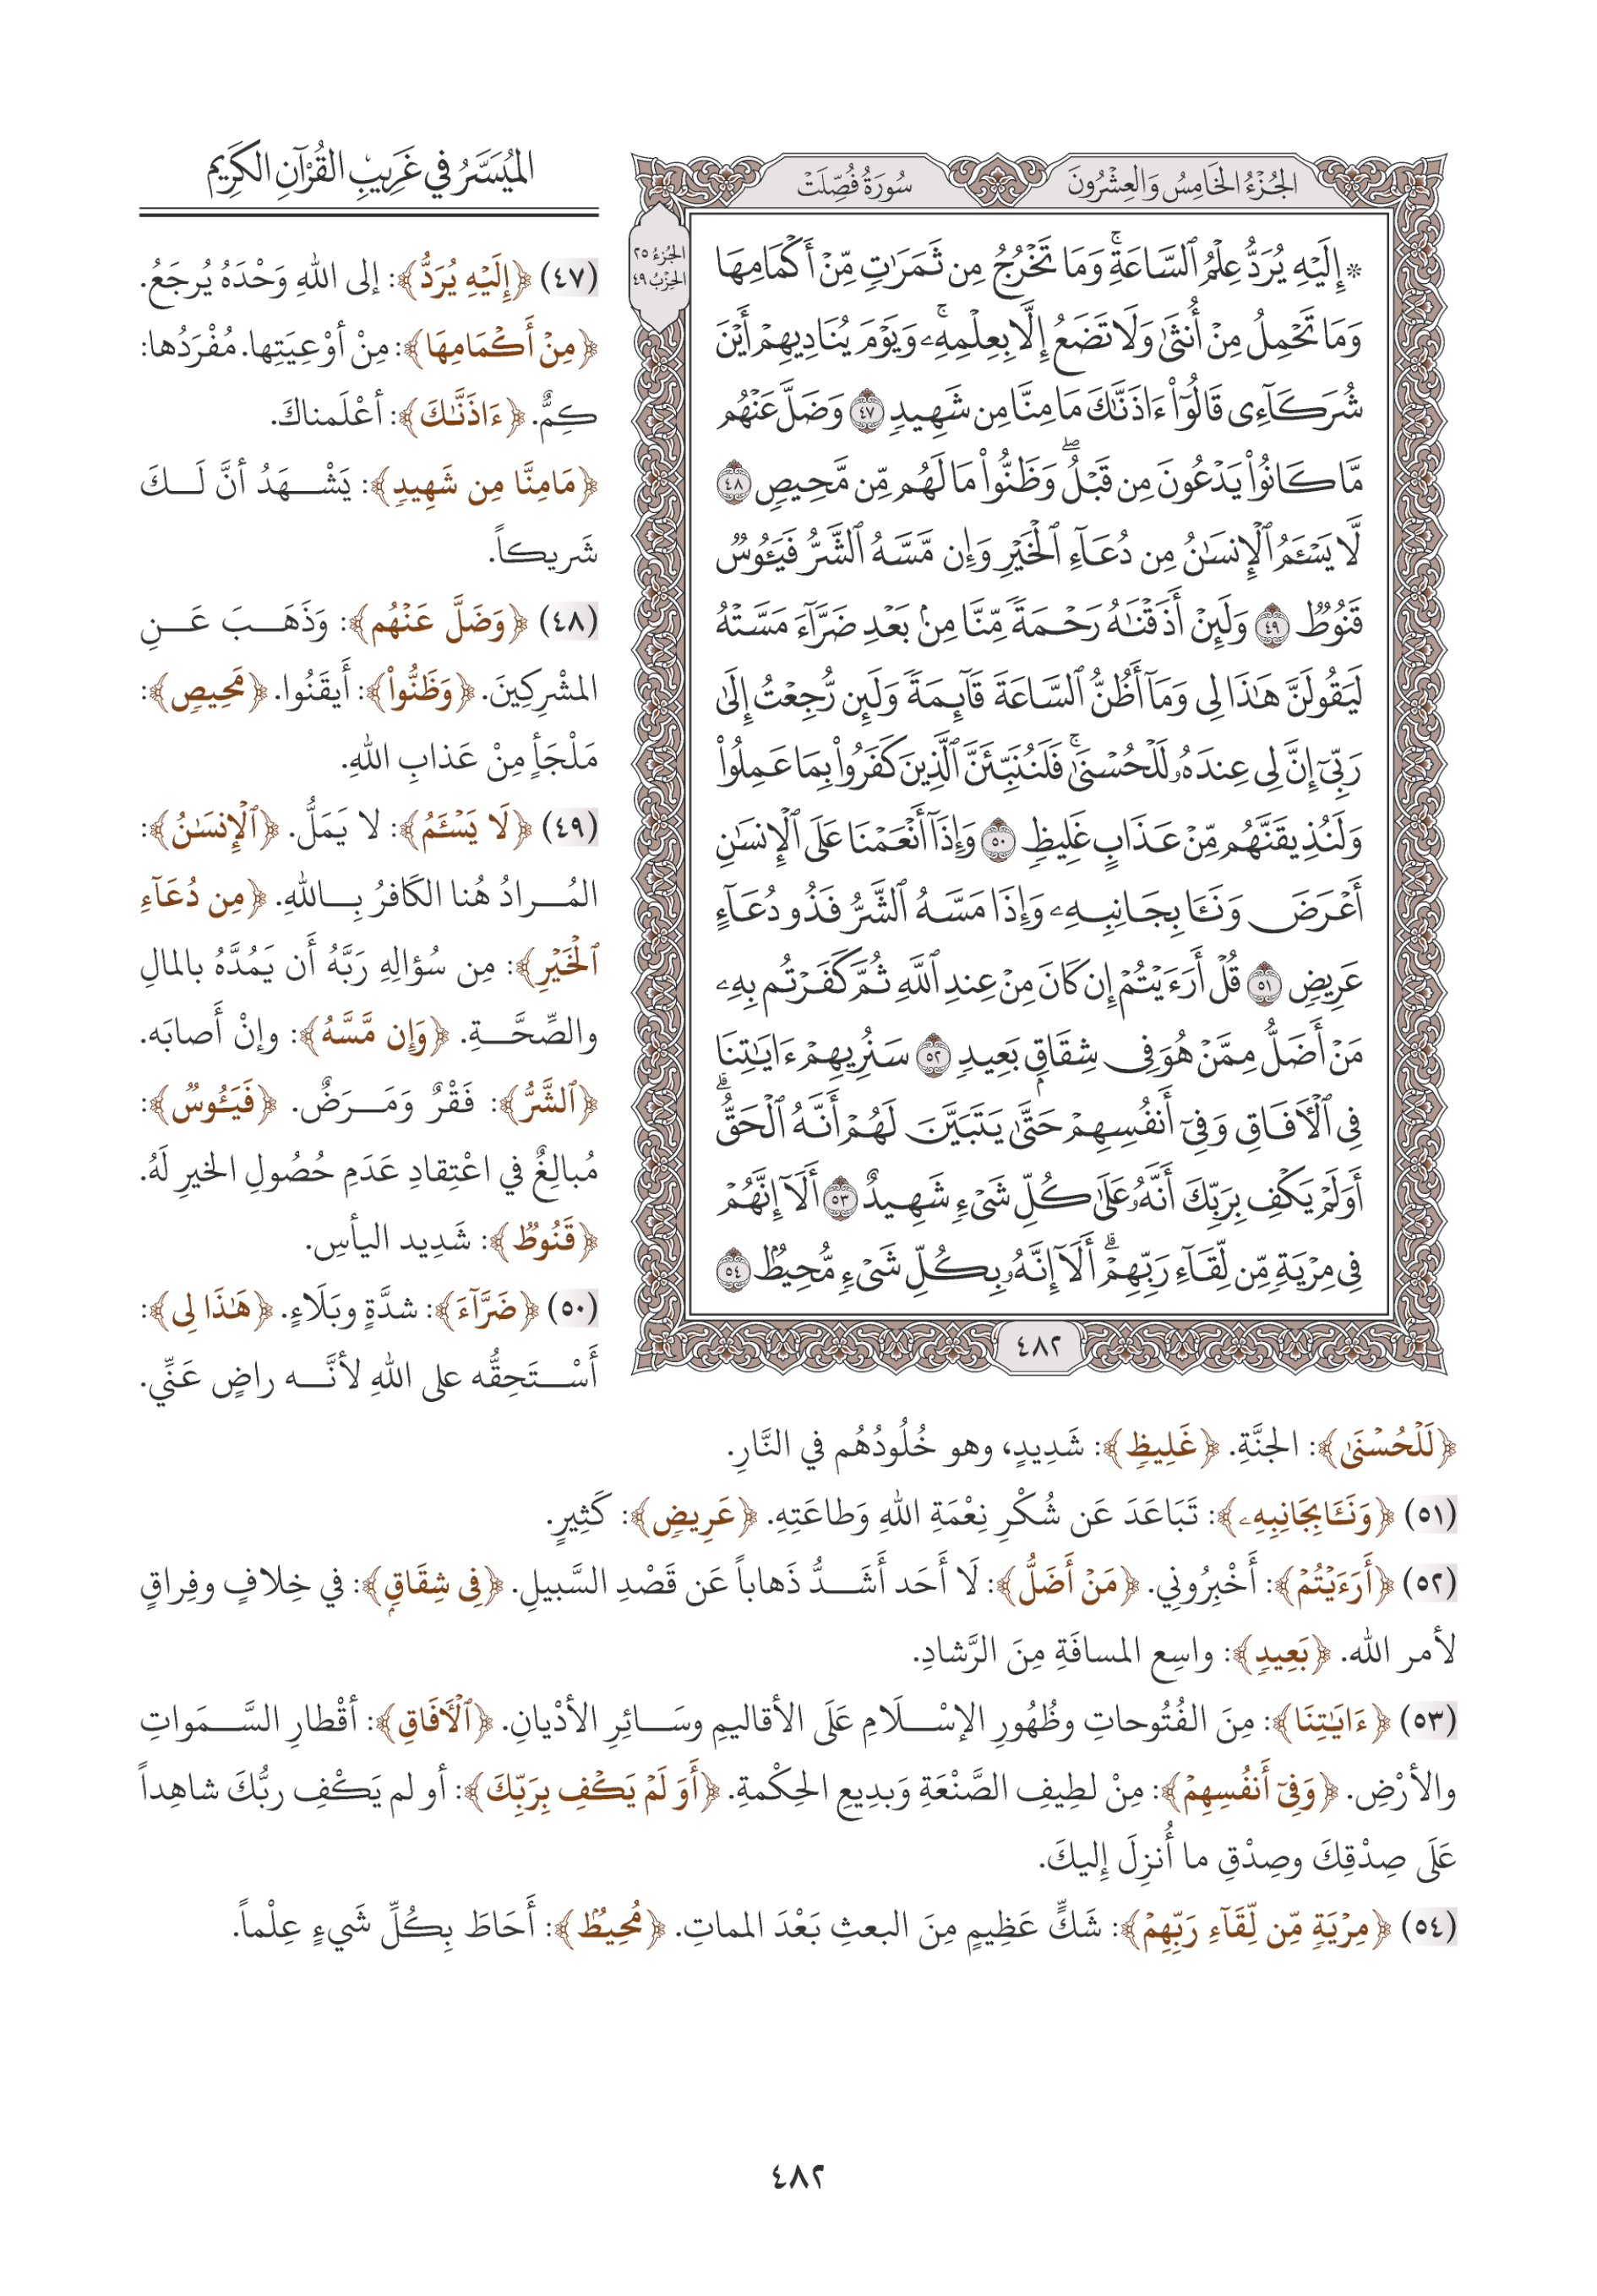 الجُزْءُ الخَامِسُ وَالعِشْرُونَ
سُورَةُ فُصِّلَتْ
الجُزءُ ٢٥
الحِزْبُ ٤٩
۞ إِلَيْهِ يُرَدُّ عِلْمُ ٱلسَّاعَةِۚ وَمَا تَخْرُجُ مِن ثَمَرَٰتٍ مِّنْ أَكْمَامِهَا
وَمَا تَحْمِلُ مِنْ أُنثَىٰ وَلَا تَضَعُ إِلَّا بِعِلْمِهِۦۚ وَيَوْمَ يُنَادِيهِمْ أَيْنَ
شُرَكَآءِى قَالُوٓا۟ ءَاذَنَّٰكَ مَا مِنَّا مِن شَهِيدٍ ٤٧ وَضَلَّ عَنْهُم
مَّا كَانُوا۟ يَدْعُونَ مِن قَبْلُۖ وَظَنُّوا۟ مَا لَهُم مِّن مَّحِيصٍ ٤٨
لَّا يَسْـَٔمُ ٱلْإِنسَٰنُ مِن دُعَآءِ ٱلْخَيْرِ وَإِن مَّسَّهُ ٱلشَّرُّ فَيَـُٔوسٌ
قَنُوطٌ ٤٩ وَلَئِنْ أَذَقْنَٰهُ رَحْمَةً مِّنَّا مِنۢ بَعْدِ ضَرَّآءَ مَسَّتْهُ
لَيَقُولَنَّ هَٰذَا لِى وَمَآ أَظُنُّ ٱلسَّاعَةَ قَآئِمَةً وَلَئِن رُّجِعْتُ إِلَىٰ
رَبِّىٓ إِنَّ لِى عِندَهُۥ لَلْحُسْنَىٰۚ فَلَنُنَبِّئَنَّ ٱلَّذِينَ كَفَرُوا۟ بِمَا عَمِلُوا۟
وَلَنُذِيقَنَّهُم مِّنْ عَذَابٍ غَلِيظٍ ٥٠ وَإِذَآ أَنْعَمْنَا عَلَى ٱلْإِنسَٰنِ
أَعْرَضَ وَنَـَٔا بِجَانِبِهِۦ وَإِذَا مَسَّهُ ٱلشَّرُّ فَذُو دُعَآءٍ
عَرِيضٍ ٥١ قُلْ أَرَءَيْتُمْ إِن كَانَ مِنْ عِندِ ٱللَّهِ ثُمَّ كَفَرْتُم بِهِۦ
مَنْ أَضَلُّ مِمَّنْ هُوَ فِى شِقَاقٍۭ بَعِيدٍ ٥٢ سَنُرِيهِمْ ءَايَٰتِنَا
فِى ٱلْـَٔافَاقِ وَفِىٓ أَنفُسِهِمْ حَتَّىٰ يَتَبَيَّنَ لَهُمْ أَنَّهُ ٱلْحَقُّۗ
أَوَلَمْ يَكْفِ بِرَبِّكَ أَنَّهُۥ عَلَىٰ كُلِّ شَىْءٍ شَهِيدٌ ٥٣ أَلَآ إِنَّهُمْ
فِى مِرْيَةٍ مِّن لِّقَآءِ رَبِّهِمْۗ أَلَآ إِنَّهُۥ بِكُلِّ شَىْءٍ مُّحِيطٌۢ ٥٤
٤٨٢
المُيَسَّرُ في غَرِيبِ القُرْآنِ الكَرِيمِ
(٤٧) ﴿إِلَيْهِ يُرَدُّ﴾: إلى اللهِ وَحْدَهُ يُرجَعُ.
﴿مِنْ أَكْمَامِهَا﴾: مِنْ أوْعِيَتِها. مُفْرَدُها:
كِمٌّ. ﴿ءَاذَنَّٰكَ﴾: أعْلَمناكَ.
﴿مَامِنَّا مِن شَهِيدٍ﴾: يَشْهَدُ أنَّ لَكَ
شَريكاً.
(٤٨) ﴿وَضَلَّ عَنْهُم﴾: وَذَهَبَ عَنِ
المشْرِكِينَ. ﴿وَظَنُّوا۟﴾: أَيقَنُوا. ﴿مَحِيصٍ﴾:
مَلْجَأٍ مِنْ عَذابِ اللهِ.
(٤٩) ﴿لَا يَسْـَٔمُ﴾: لا يَمَلُّ. ﴿ٱلْإِنسَٰنُ﴾:
المُرادُ هُنا الكَافرُ بِاللهِ. ﴿مِن دُعَآءِ
ٱلْخَيْرِ﴾: مِن سُؤالِهِ رَبَّهُ أَن يَمُدَّهُ بالمالِ
والصِّحَّةِ. ﴿وَإِن مَّسَّهُ﴾: وإنْ أَصابَه.
﴿ٱلشَّرُّ﴾: فَقْرٌ وَمَرَضٌ. ﴿فَيَـُٔوسٌ﴾:
مُبالِغٌ في اعْتِقادِ عَدَمِ حُصُولِ الخيرِ لَهُ.
﴿قَنُوطٌ﴾: شَدِيد اليأسِ.
(٥٠) ﴿ضَرَّآءَ﴾: شدَّةٍ وبَلَاءٍ. ﴿هَٰذَا لِى﴾:
أَسْتَحِقُّه على اللهِ لأنَّه راضٍ عَنِّي.
﴿لَلْحُسْنَىٰ﴾: الجنَّةِ. ﴿غَلِيظٍ﴾: شَدِيدٍ، وهو خُلُودُهُم في النَّارِ.
(٥١) ﴿وَنَـَٔابِجَانِبِهِۦ﴾: تَبَاعَدَ عَن شُكْرِ نِعْمَةِ اللهِ وَطاعَتِهِ. ﴿عَرِيضٍ﴾: كَثِيرٍ.
(٥٢) ﴿أَرَءَيْتُمْ﴾: أَخْبِرُوني. ﴿مَنْ أَضَلُّ﴾: لَا أَحَد أَشَدُّ ذَهاباً عَن قَصْدِ السَّبيلِ. ﴿فِى شِقَاقٍۭ﴾: في خِلافٍ وفِراقٍ
لأمر الله. ﴿بَعِيدٍ﴾: واسِع المسافَةِ مِنَ الرَّشادِ.
(٥٣) ﴿ءَايَٰتِنَا﴾: مِنَ الفُتُوحاتِ وظُهُورِ الإسْلَامِ عَلَى الأقاليمِ وسَائِرِ الأدْيانِ. ﴿ٱلْـَٔافَاقِ﴾: أقْطارِ السَّمَواتِ
والأرْضِ. ﴿وَفِىٓ أَنفُسِهِمْ﴾: مِنْ لطِيفِ الصَّنْعَةِ وَبدِيعِ الحِكْمةِ. ﴿أَوَ لَمْ يَكْفِ بِرَبِّكَ﴾: أو لم يَكْفِ ربُّكَ شاهِداً
عَلَى صِدْقِكَ وصِدْقِ ما أُنزِلَ إليكَ.
(٥٤) ﴿مِرْيَةٍ مِّن لِّقَآءِ رَبِّهِمْ﴾: شَكٍّ عَظِيمٍ مِنَ البعثِ بَعْدَ المماتِ. ﴿مُحِيطٌۢ﴾: أَحَاطَ بِكُلِّ شَيءٍ عِلْماً.
٤٨٢